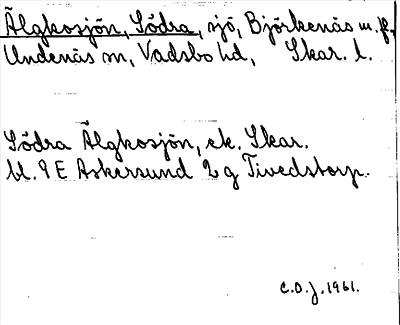 Älgkosjön, Södra, sjö, Björkenäs m. fl.
Undenäs sn, Vadsbo hd, Skar. l.
Södra Älgkosjön, ek. Skar.
bl. 9 E Askersund 2 g Tivedstorp.
C.O.J. 1961.